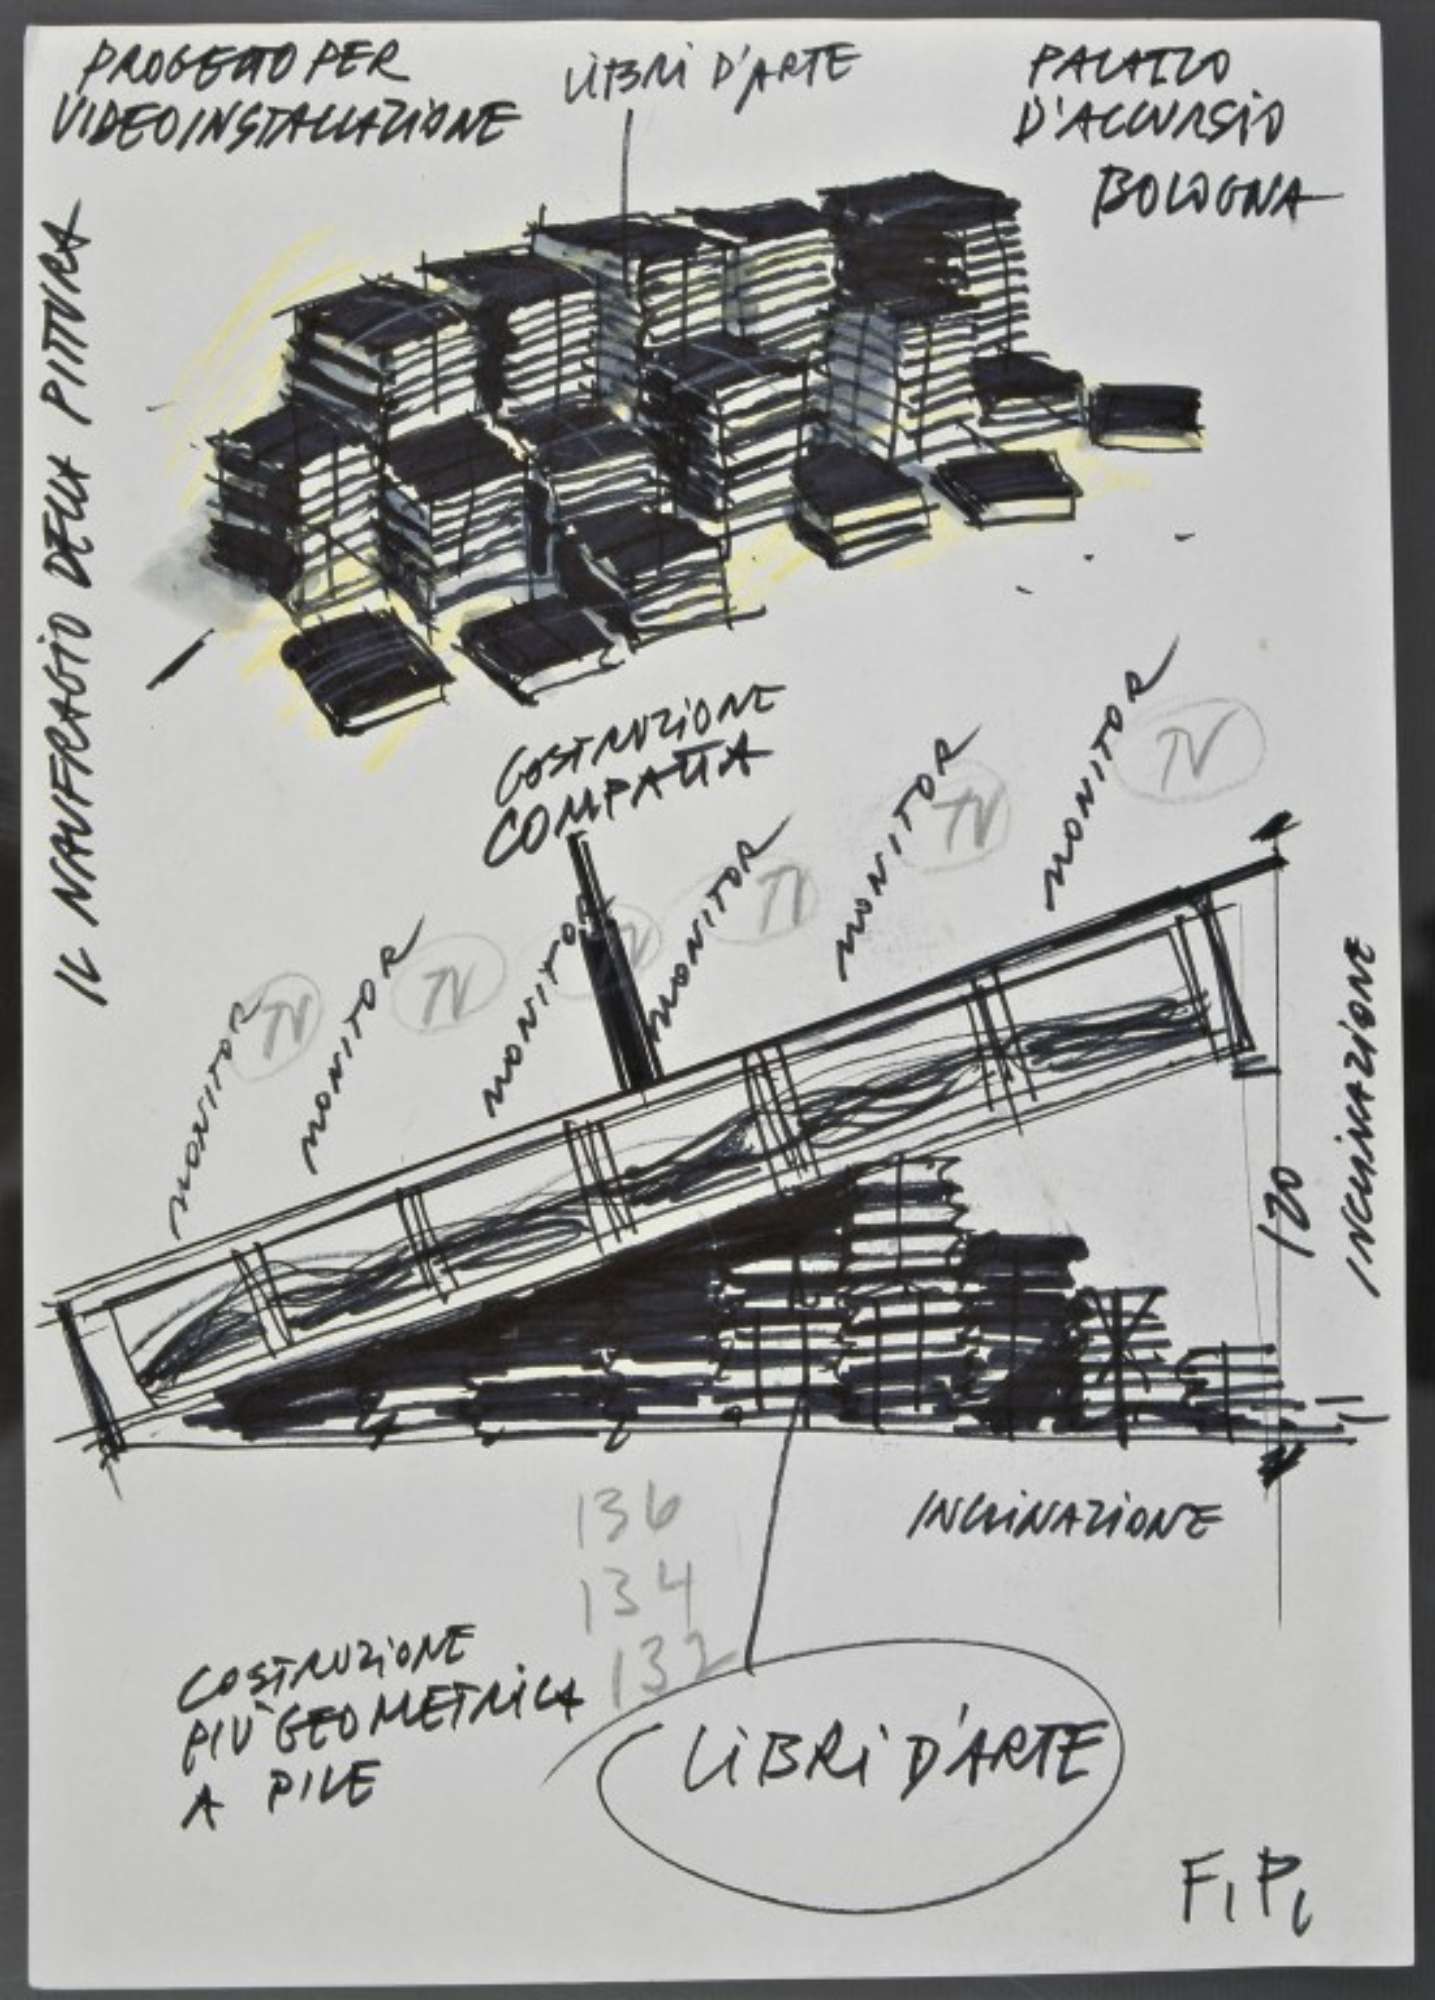 PROGETTO PER
VIDEOINSTALLAZIONE
LIBRI D'ARTE
PALAZZO
D'ACCURSIO
BOLOGNA
IL NAUFRAGIO DELLA PITTURA
COSTRUZIONE
COMPATTA
MONITOR TV
MONITOR TV
MONITOR TV
MONITOR TV
MONITOR TV
MONITOR TV
120
INCLINAZIONE
INCLINAZIONE
136
134
132
COSTRUZIONE
PIÙ GEOMETRICA
A PILE
LIBRI D'ARTE
F. P.